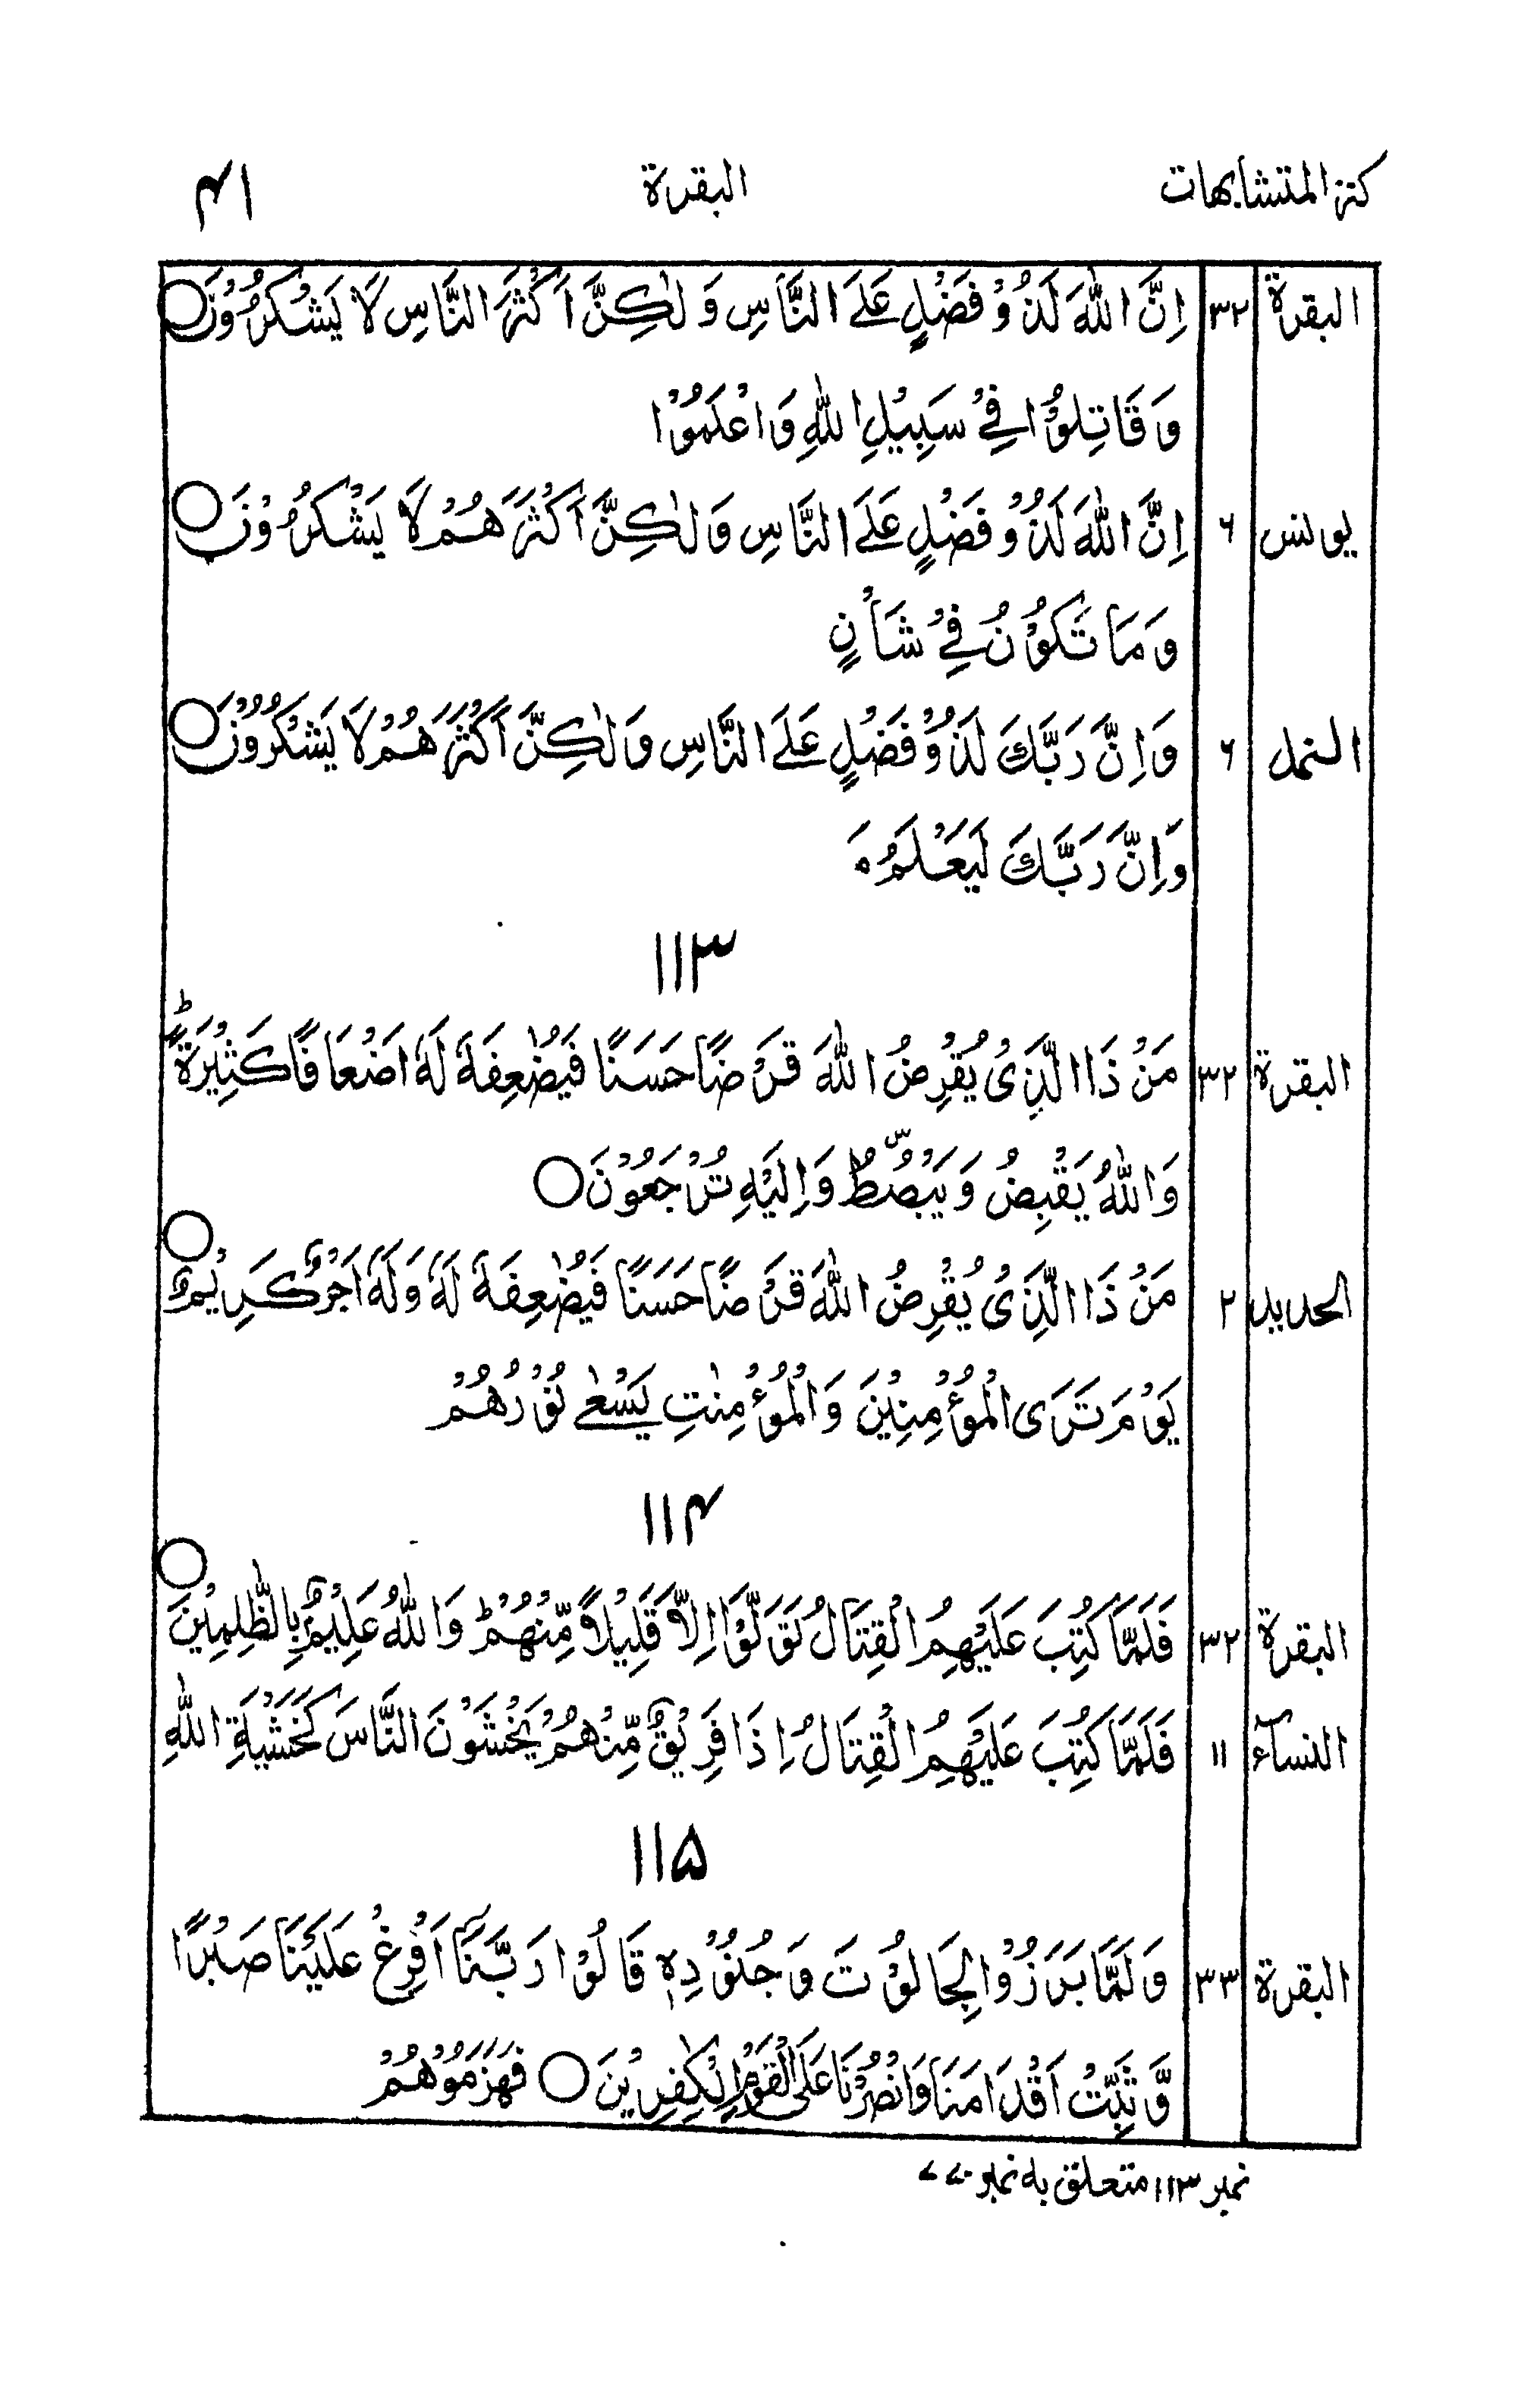 كنز المتشابهات البقرة ۴۱
البقرة ۳۲ اِنَّ اللّٰهَ لَذُوْ فَضْلٍ عَلَے النَّاسِ وَلٰكِنَّ اَكْثَرَ النَّاسِ لَا يَشْكُرُوْنَ○
وَقَاتِلُوْا فِيْ سَبِيْلِ اللّٰهِ وَاعْلَمُوْا
يونس ۶ اِنَّ اللّٰهَ لَذُوْ فَضْلٍ عَلَے النَّاسِ وَلٰكِنَّ اَكْثَرَهُمْ لَا يَشْكُرُوْنَ○
وَمَا تَكُوْنُ فِيْ شَاْنٍ
النمل ۶ وَاِنَّ رَبَّكَ لَذُوْ فَضْلٍ عَلَے النَّاسِ وَلٰكِنَّ اَكْثَرَهُمْ لَا يَشْكُرُوْنَ○
وَاِنَّ رَبَّكَ لَيَعْلَمُ مَ
۱۱۳
البقرة ۳۲ مَنْ ذَا الَّذِيْ يُقْرِضُ اللّٰهَ قَرْضًا حَسَنًا فَيُضٰعِفَهٗ لَهٗٓ اَضْعَافًا كَثِيْرَةً ؕ
وَاللّٰهُ يَقْبِضُ وَيَبْصُۜطُ وَاِلَيْهِ تُرْجَعُوْنَ○
الحديد ۲ مَنْ ذَا الَّذِيْ يُقْرِضُ اللّٰهَ قَرْضًا حَسَنًا فَيُضٰعِفَهٗ لَهٗ وَلَهٗٓ اَجْرٌ كَرِيْمٌ○
يَوْمَ تَرَى الْمُؤْمِنِيْنَ وَالْمُؤْمِنٰتِ يَسْعٰے نُوْرُهُمْ
۱۱۴
البقرة ۳۲ فَلَمَّا كُتِبَ عَلَيْهِمُ الْقِتَالُ تَوَلَّوْا اِلَّا قَلِيْلًا مِّنْهُمْ ؕ وَاللّٰهُ عَلِيْمٌۢ بِالظّٰلِمِيْنَ○
النسآء ۱۱ فَلَمَّا كُتِبَ عَلَيْهِمُ الْقِتَالُ اِذَا فَرِيْقٌ مِّنْهُمْ يَخْشَوْنَ النَّاسَ كَخَشْيَةِ اللّٰهِ
۱۱۵
البقرة ۳۳ وَلَمَّا بَرَزُوْا لِجَالُوْتَ وَجُنُوْدِهٖ قَالُوْا رَبَّنَآ اَفْرِغْ عَلَيْنَا صَبْرًا
وَّثَبِّتْ اَقْدَامَنَا وَانْصُرْنَا عَلَى الْقَوْمِ الْكٰفِرِيْنَ○ فَهَزَمُوْهُمْ
نمبر ۱۱۳ متعلق بہ نمبر ۷۷۰